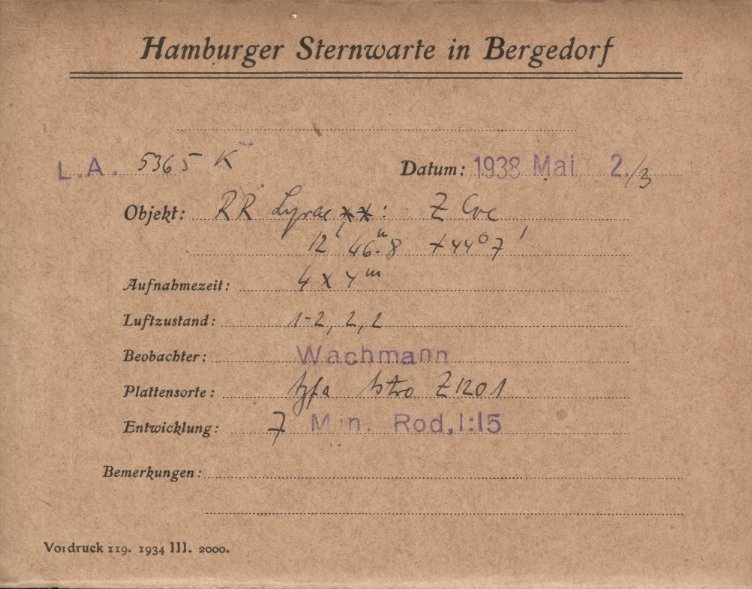 Hamburger Sternwarte in Bergedorf
L.A. 5365 K
Datum: 1938 Mai 2./3
Objekt: RR Lyrae **: Z CVe
12ʰ 46ᵐ.8 +44° 7'
Aufnahmezeit: 4 x 4ᵐ
Luftzustand: 1-2, 2, 2
Beobachter: Wachmann
Plattensorte: Agfa Astro Z1201
Entwicklung: 7 Min. Rod, 1:15
Bemerkungen:
Vordruck 119. 1934 III. 2000.